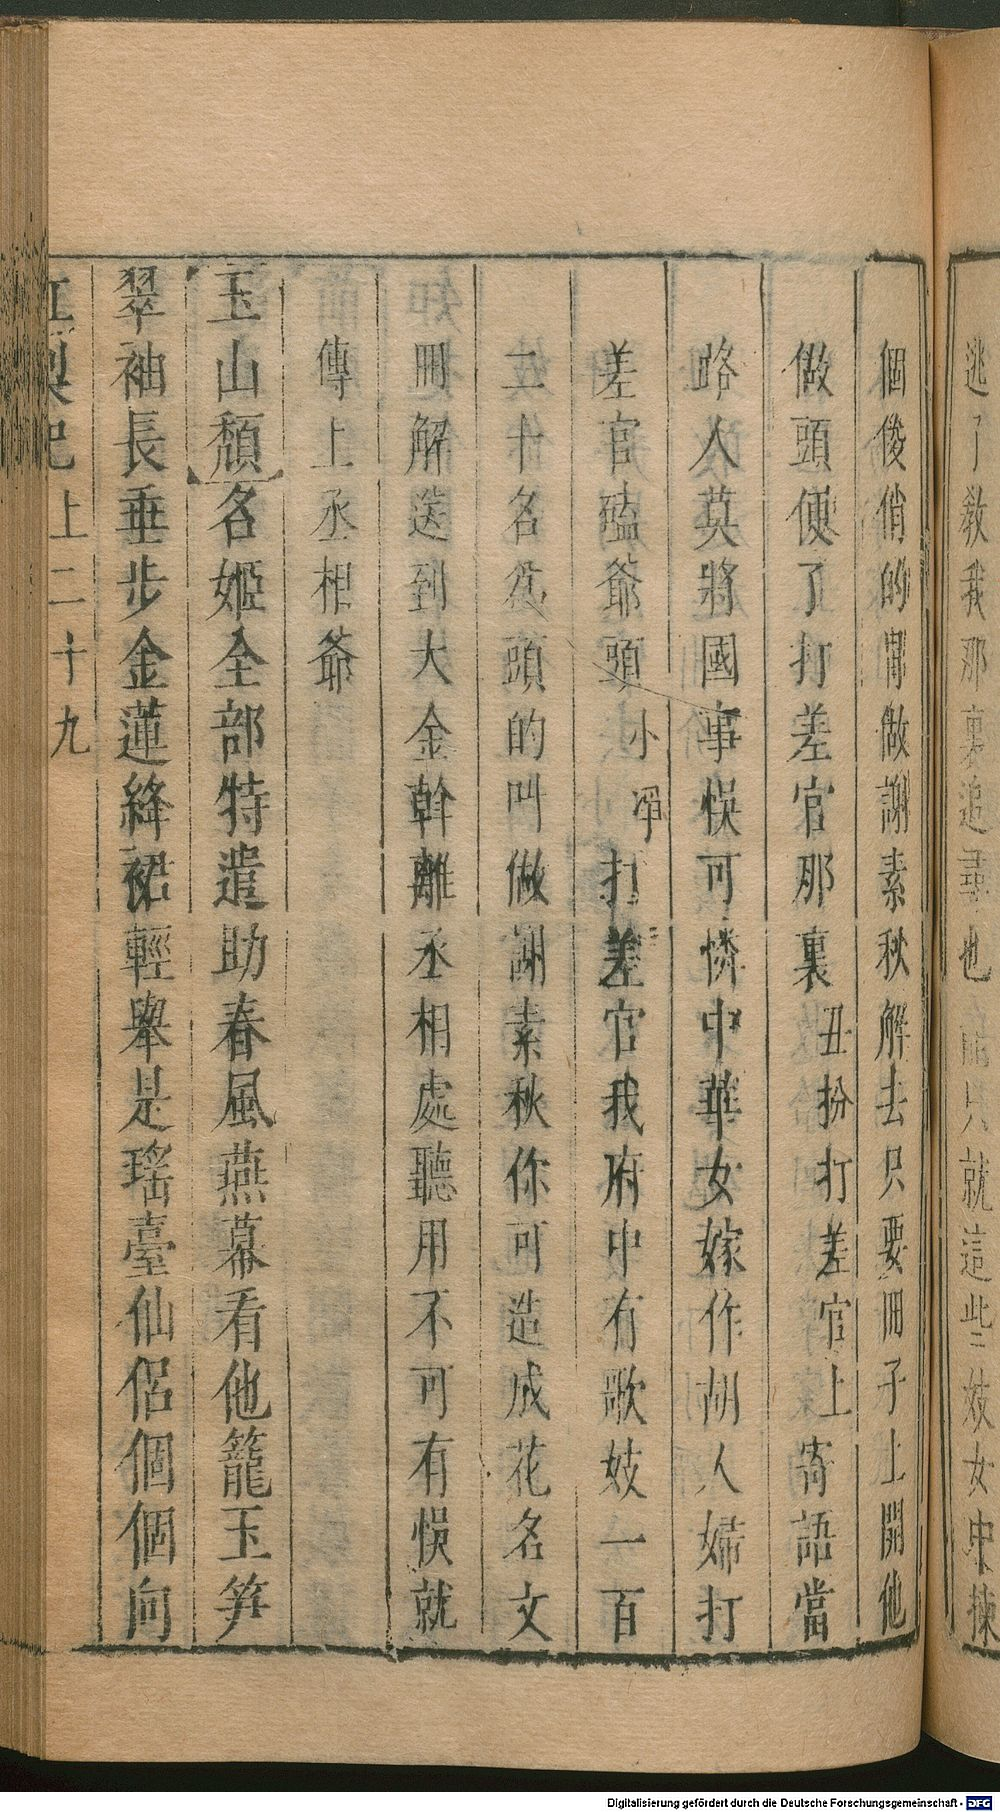 逃了教我那裏追尋也 只就這些妓女中揀
個俊俏的 做謝素秋解去只要冊子上開他
做頭便了打差官那裏丑扮打差官上寄語當
路人莫將國事悞可憐中華女嫁作胡人婦打
差官磕爺頭小淨打差官我府中有歌妓一百
二十名爲頭的叫做謝素秋你可造成花名文
冊解送到大金幹離丞相處聽用不可有悞就
傳上丞相爺
玉山頹名姬全部特遣助春風燕幕看他籠玉笋
翠袖長垂步金蓮絳裙輕舉是瑤臺仙侶個個向
紅梨記上二十九
Digitalisierung gefördert durch die Deutsche Forschungsgemeinschaft - DFG